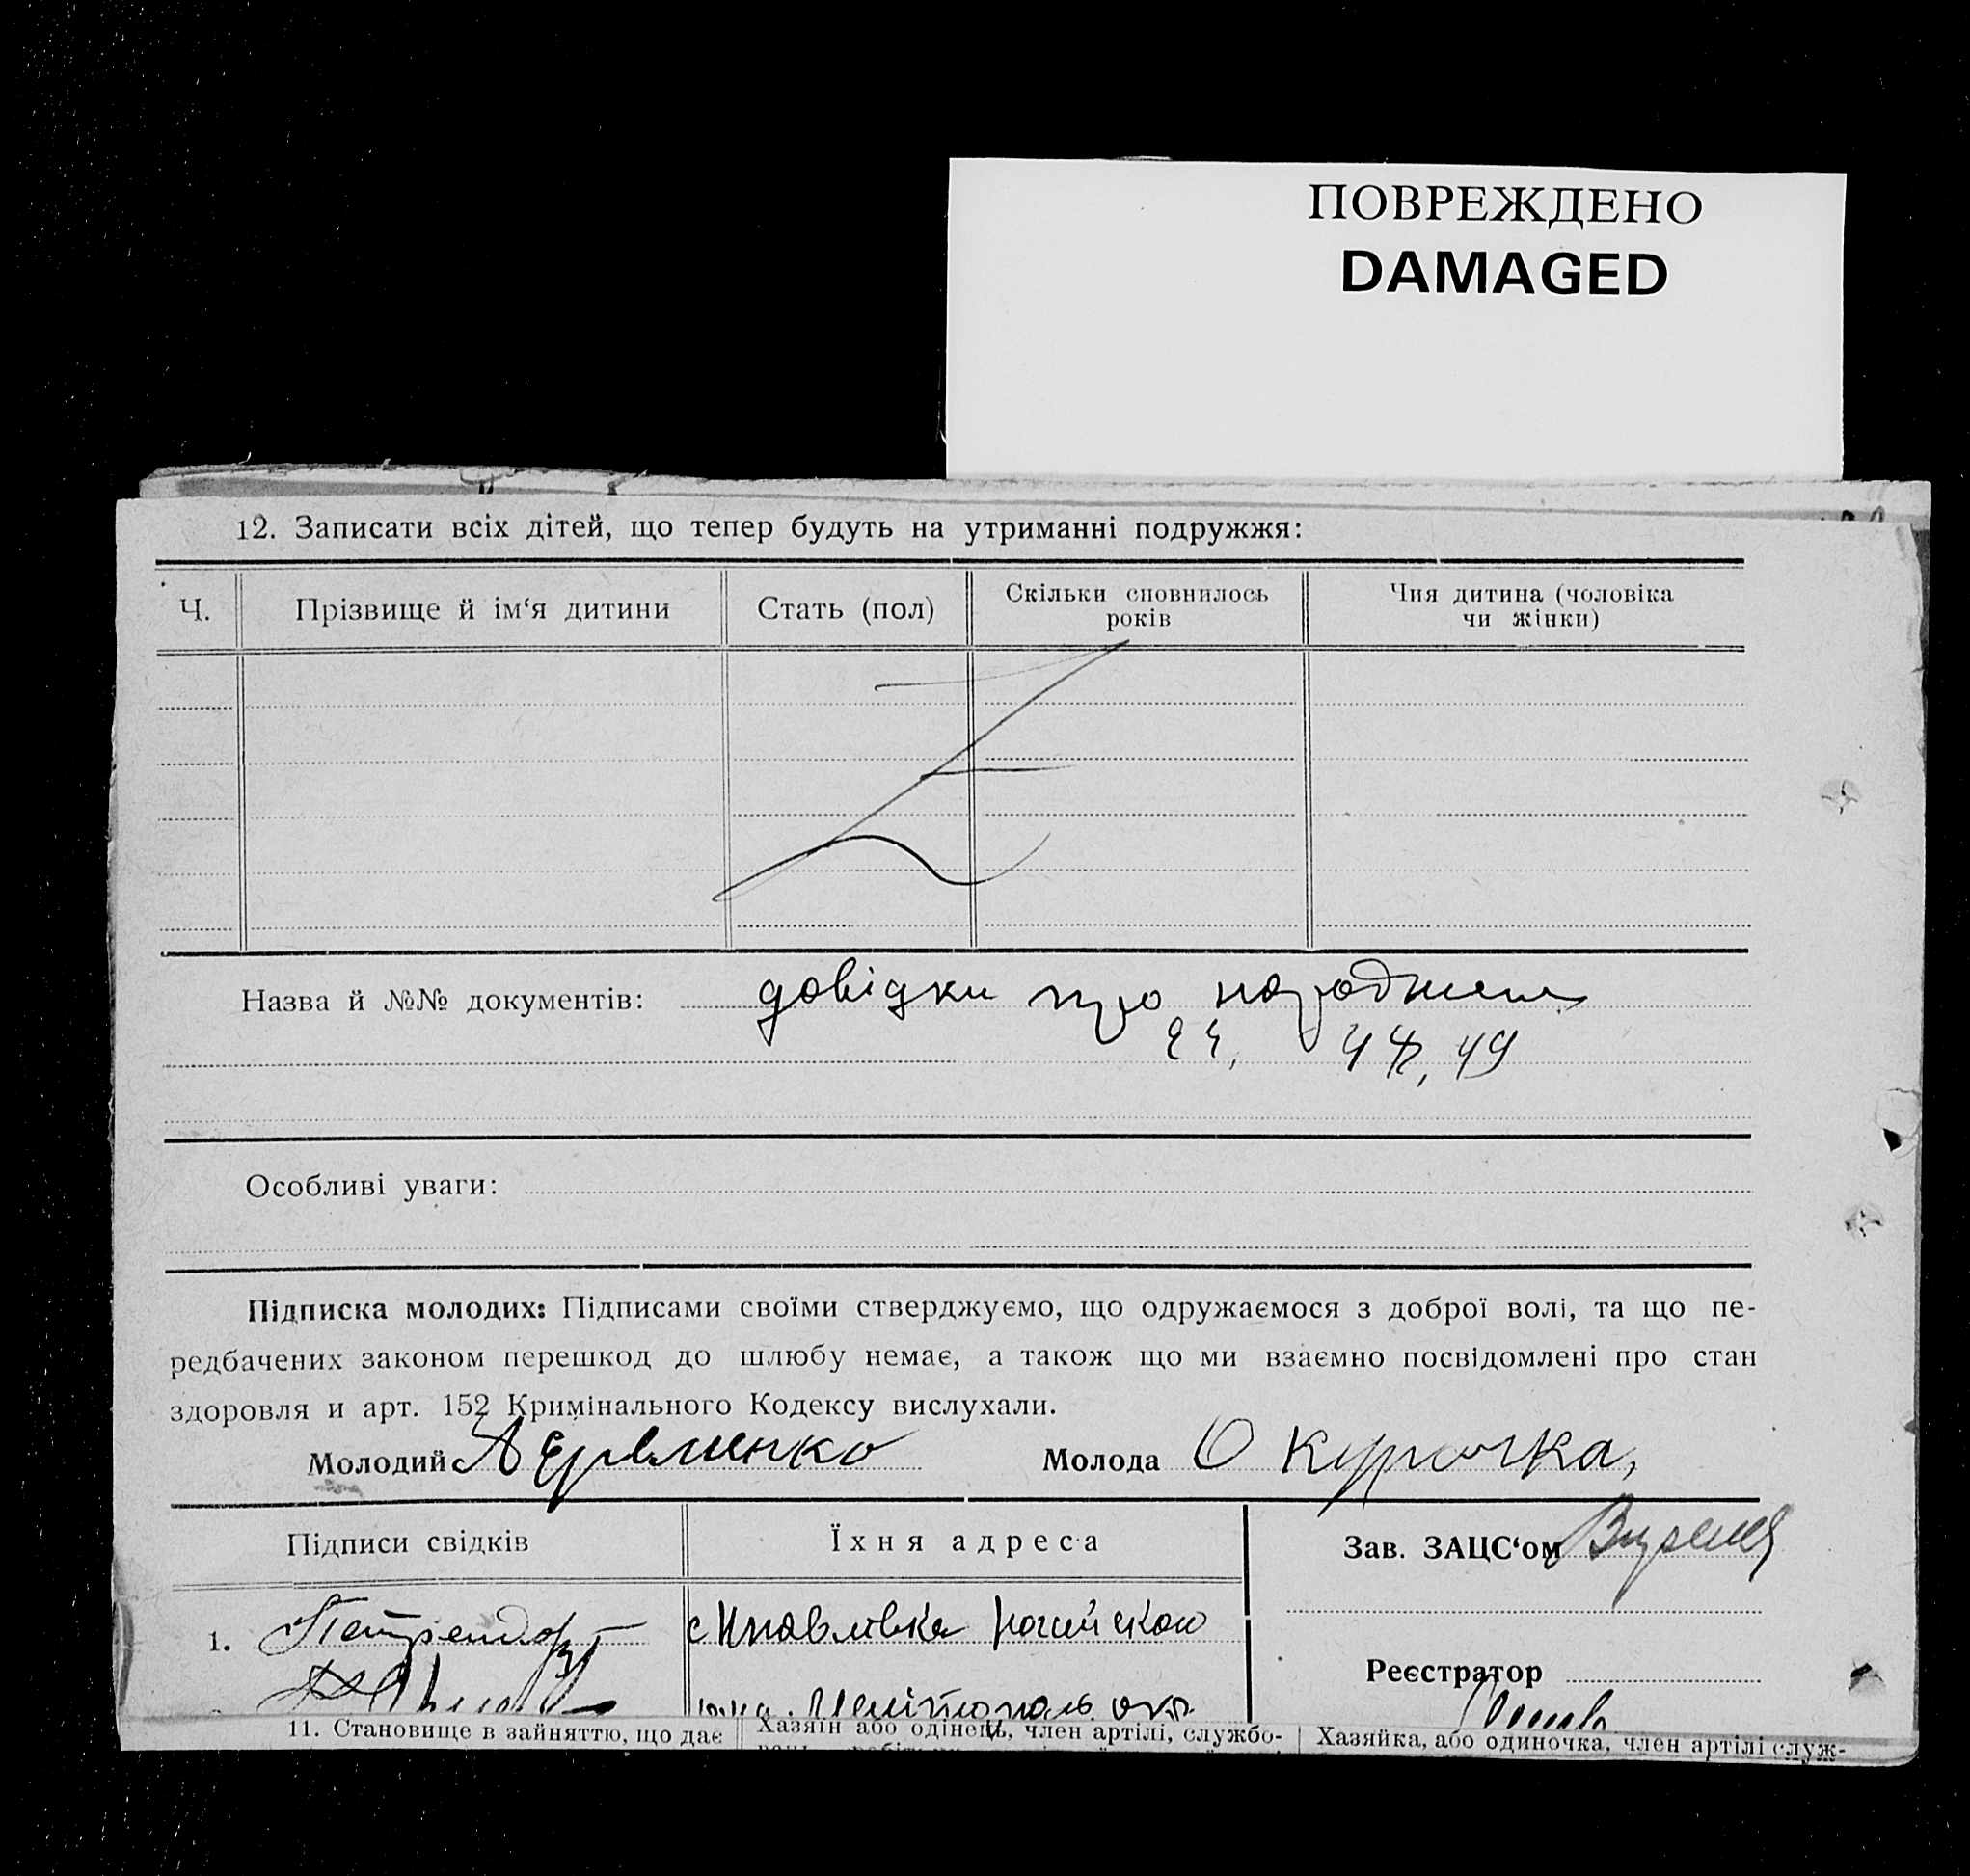 ПОВРЕЖДЕНО
DAMAGED
12. Записати всіх дітей, що тепер будуть на утриманні подружжя:
Ч. Прізвище й ім‘я дитини Стать (пол) Скільки сповнилось років Чия дитина (чоловіка чи жінки)
Назва й №№ документів: довідки про народження
44, 49
Особливі уваги:
Підписка молодих: Підписами своїми стверджуємо, що одружаємося з доброї волі, та що пе-
редбачених законом перешкод до шлюбу немає, а також що ми взаємно посвідомлені про стан
здоровля и арт. 152 Кримінального Кодексу вислухали.
Молодий Молода О Курочка,
Підписи свідків Їхня адреса Зав. ЗАЦС‘ом
1.
Реєстратор
11. Становище в зайняттю, що дає Хазяїн або одінець, член артілі, службо- Хазяйка, або одиночка, член артілі служ-